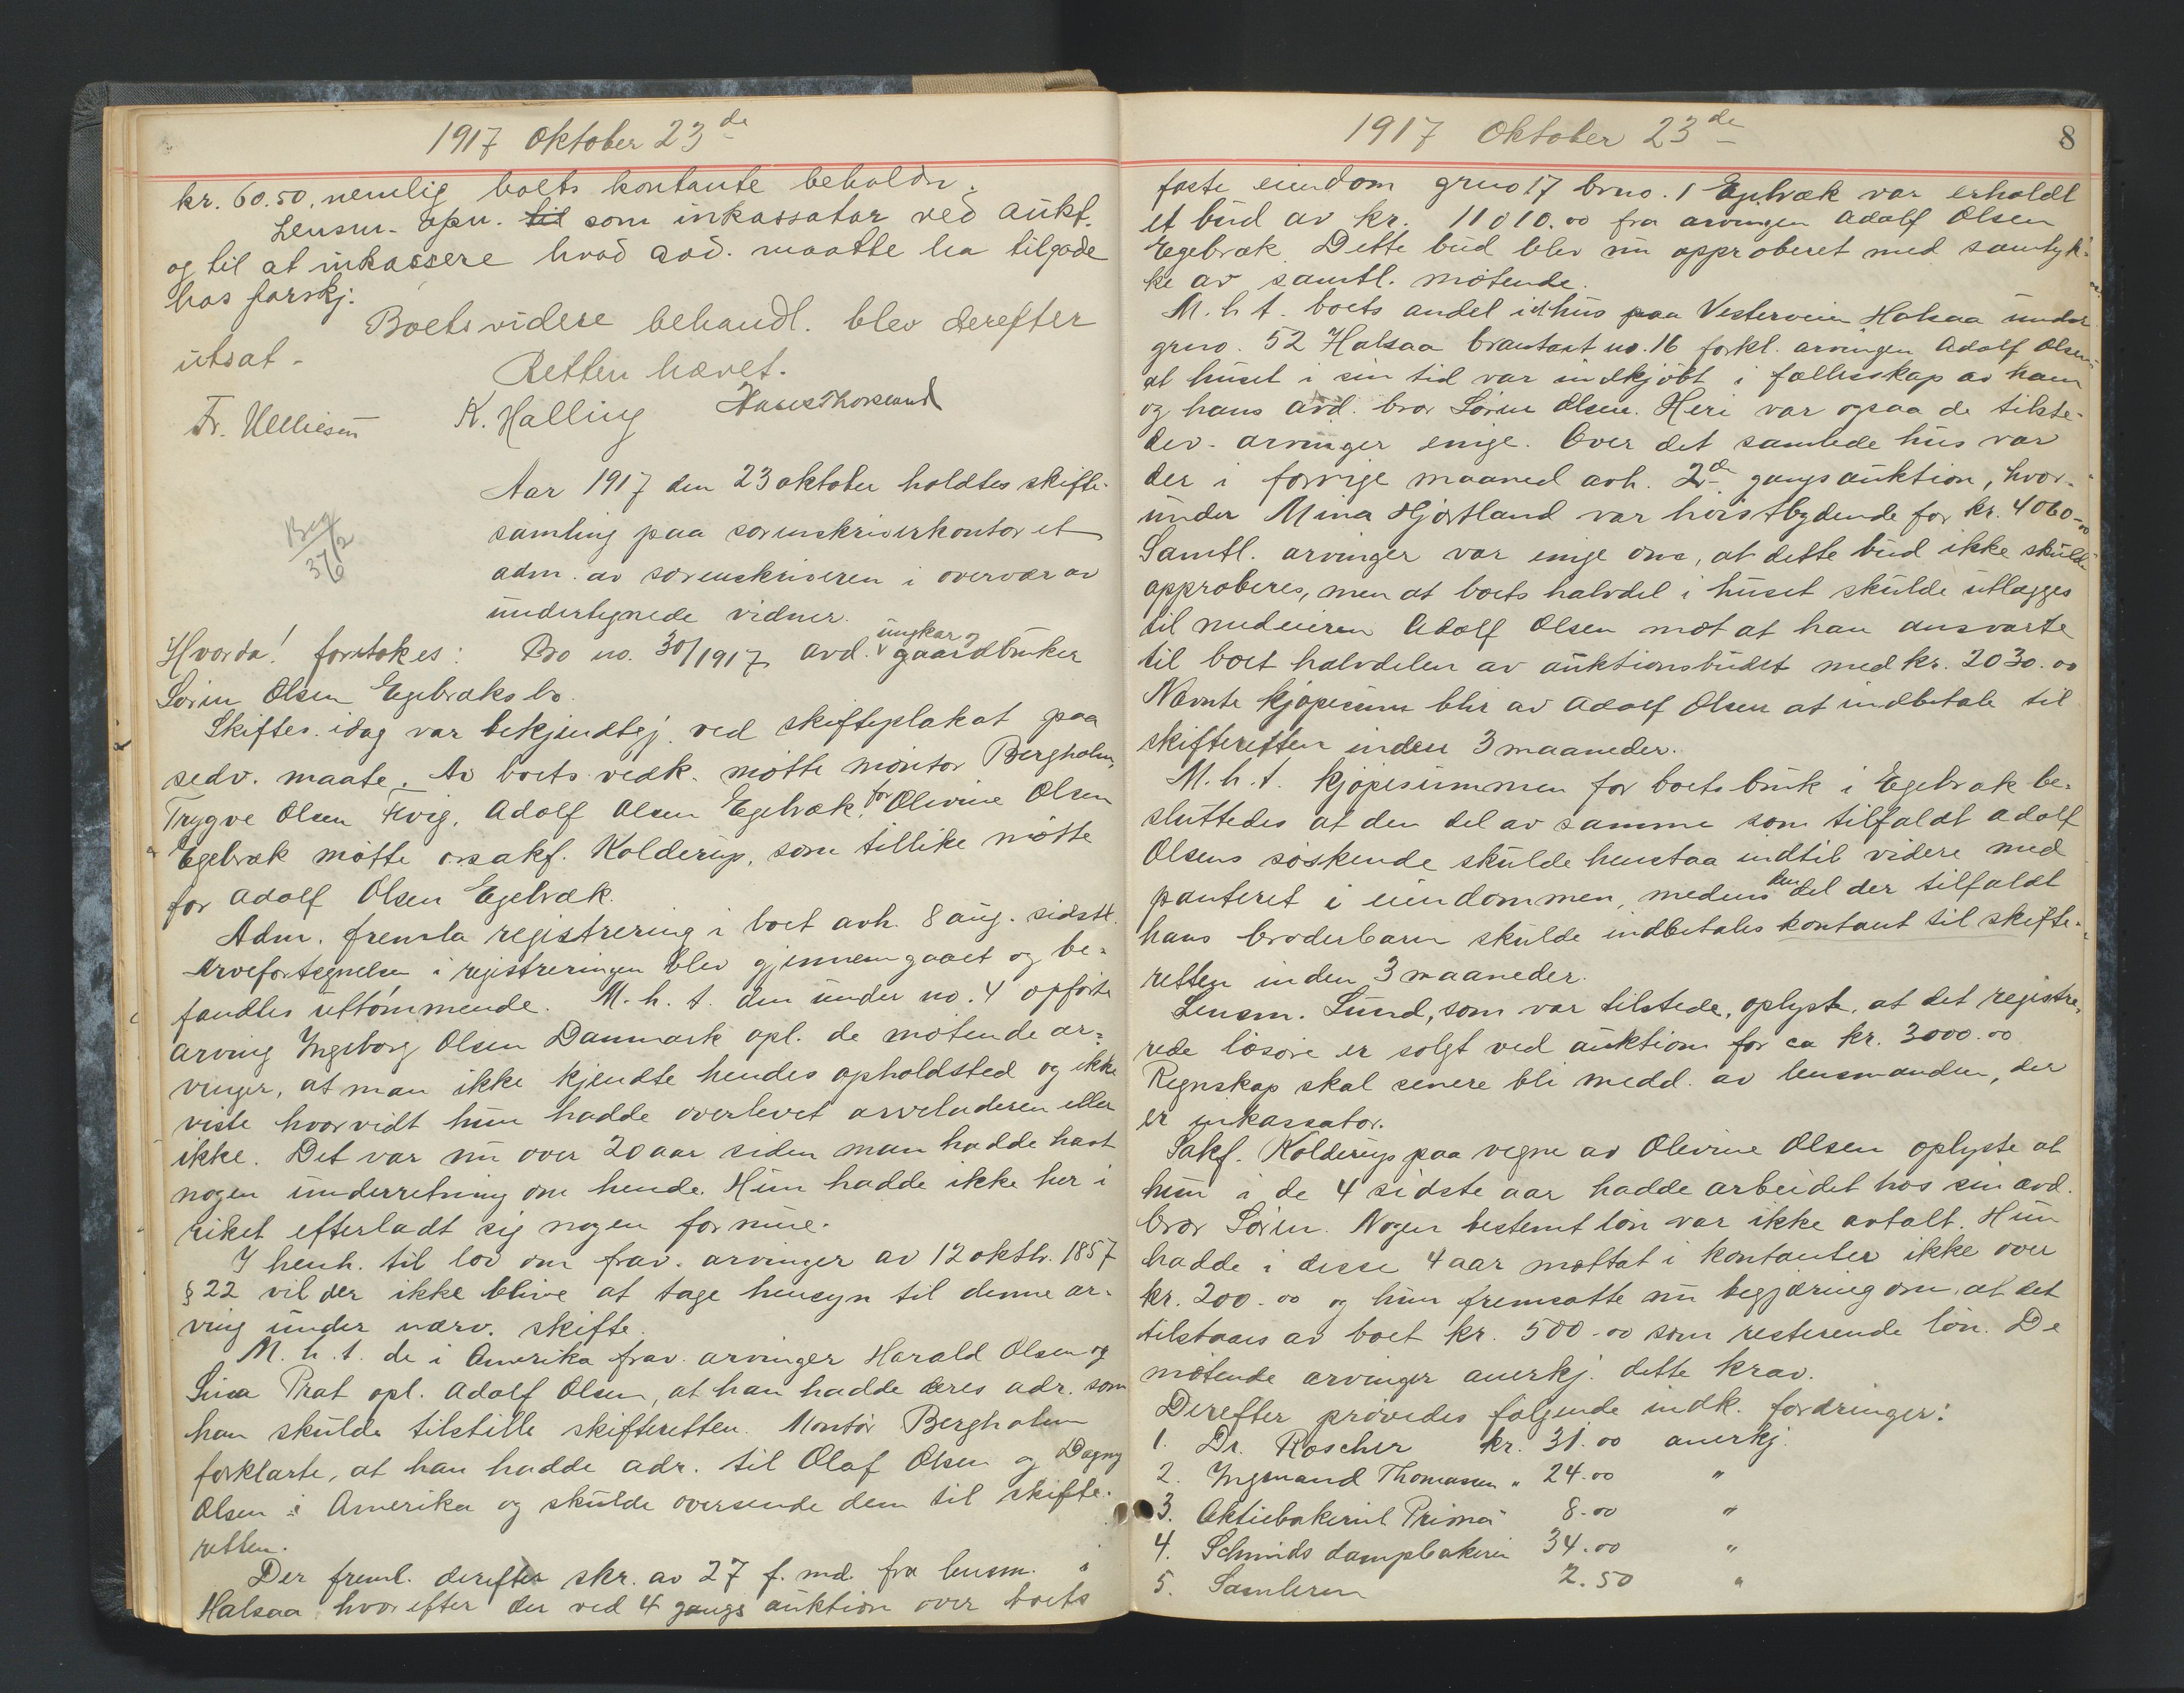 1917 Oktober 23de
kr. 60.50, nemlig boets kontante beholdn.
Lensm. opn. til som inkassator ved aukt.
og til at inkassere hvad avd. maatte ha tilgode
hos forskj.
Boets videre behandl. blev derefter
utsat -
Retten hævet.
K. Halling
Aar 1917 den 23 oktober holdtes skifte-
samling paa sorenskriverkontoret
adm. av sorenskriveren i overvær av
undertegnede vidner.
Hvorda! foretokes: Bo no. 30/1917 avd. ungkar gaardbruker
Sørin Olsen Egebræks bo.
Skiftes. idag var bekjendtgj. ved skifteplakat paa
sedv. maate. Av boets vedk. møtte montør Bergholm,
Trygve Olsen Kvig, Adolf Olsen Egebræk. For Olivine Olsen
Egebræk møtte o.r.sakf. Kolderup, som tillike møtte
for Adolf Olsen Egebræk.
Adm. fremla registrering i boet avh. 8 aug. sidstl.
Arvefortegnelsen i registreringen blev gjennemgaaet og be-
fandtes uttømmende. M. h. t. den under no. 4 opførte
arving Ingeborg Olsen Danmark opl. de møtende ar-
vinger, at man ikke kjendte hendes opholdsted og ikke
viste hvorvidt hun hadde overlevet arveladeren eller
ikke. Det var nu over 20 aar siden man hadde havt
nogen underretning om hende. Hun hadde ikke her i
riket efterladt sig nogen formue.
I henh. til lov om frav. arvinger av 12 oktbr. 1857
§ 22 vil der ikke blive at tage hensyn til denne ar-
ving under nærv. skifte.
M. h. t. de i Amerika frav. arvinger Harald Olsen og
Sina Prat opl. Adolf Olsen, at han hadde deres adr. som
han skulde tilstille skifteretten. Montør Bergholm
forklarte, at han hadde adr. til Olaf Olsen og Dagny
Olsen i Amerika og skulde oversende dem til skifte-
retten.
Der freml. derefter skr. av 27 f. md. fra lensm. i
Halsaa hvorefter der ved 4 gangs auktion over boets
1917 Oktober 23de
8
faste eiendom grno 17 brno. 1 Egebræk var erholdt
et bud av kr. 11010.00 fra arvingen Adolf Olsen
Egebræk. Dette bud blev nu approberet med samtyk-
ke av samtl. møtende.
M. h. t. boets andel i et hus paa Vesterveien Halsaa under
grno. 52 Halsaa branttakst no. 16 forkl. arvingen Adolf Olsen
at huset i sin tid var indkjøbt i fællesskap av ham
og hans avd. bror Sørin Olsen. Heri var ogsaa de tilste-
dev. arvinger enige. Over det samlede hus var
der i forrige maaned avh. 2den gangs auktion, hvor-
under Mina Hjortland var høistbydende for kr. 4060.00
Samtl. arvinger var enige om, at dette bud ikke skulde
approberes, men at boets halvdel i huset skulde utlægges
til medeieren Adolf Olsen mot at han ansvarte
til boet halvdelen av auktionsbudet med kr. 2030.00
Nævnte kjøpesum blir av Adolf Olsen at indbetale til
skifteretten inden 3 maaneder.
M. h. t. kjøpesummen for boets bruk i Egebræk be-
sluttedes at den del av samme som tilfaldt Adolf
Olsens søskende skulde henstaa indtil videre med
panteret i eiendommen, medens den del der tilfaldt
hans broderbarn skulde indbetales kontant til skifte-
retten inden 3 maaneder.
Lensm. Lund, som var tilstede, oplyste, at det registre-
rede løsøre er solgt ved auktion for ca kr. 3000.00
Regnskap skal senere bli medd. av lensmanden, der
er inkassator.
Sakf. Kolderup paa vegne av Olivine Olsen oplyste at
hun i de 4 sidste aar hadde arbeidet hos sin avd.
bror Sørin. Nogen bestemt løn var ikke avtalt. Hun
hadde i disse 4 aar mottat i kontanter ikke over
kr. 200.00 og hun fremsatte nu begjæring om, at det
tilstaaes av boet kr. 500.00 som resterende løn. De
møtende arvinger anerkj. dette krav.
Derefter prøvedes følgende indk. fordringer:
1. Dr. Roscher kr. 31.00 anerkj.
2. Ingmand Thomassen " 24.00 "
3. Aktiebakeriet Prima 8.00 "
4. Schmids dampbakeri 34.00 "
5. Samleren 2.50 "